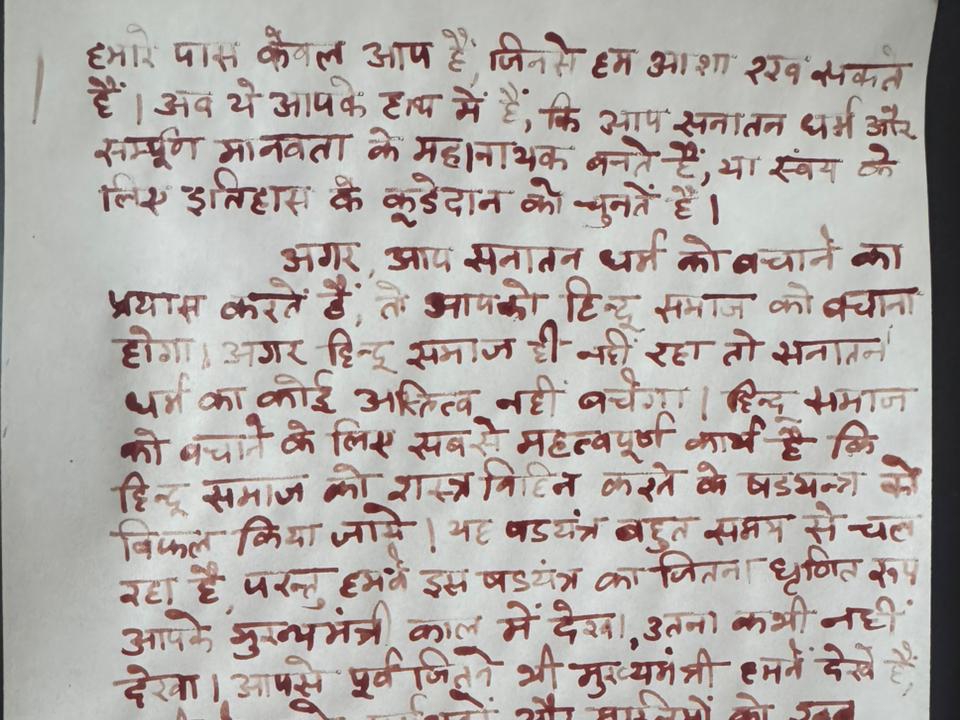 हमारे पास केवल आप हैं, जिनसे हम आशा रख सकते
हैं। अब ये आपके हाथ में हैं, कि आप सनातन धर्म और
सम्पूर्ण मानवता के महानायक बनते हैं, या स्वंय के
लिए इतिहास के कूडेदान को चुनतें हैं।
अगर, आप सनातन धर्म को बचाने का
प्रयास करतें हैं, तो आपको हिन्दू समाज को बचाना
होगा। अगर हिन्दू समाज ही नहीं रहा तो सनातन
धर्म का कोई अस्तित्व नहीं बचेगा। हिन्दू समाज
को बचाने के लिए सबसे महत्वपूर्ण कार्य है कि
हिन्दू समाज को शस्त्र विहिन करते के षडयन्त्र को
विफल किया जाये। यह षडयंत्र बहुत समय से चल
रहा है, परन्तु हमने इस षडयंत्र का जितना घृणित रूप
आपके मुख्यमंत्री काल में देखा, उतना कभी नहीं
देखा। आपसे पूर्व जितने भी मुख्यमंत्री हमनें देखें हैं,
और को